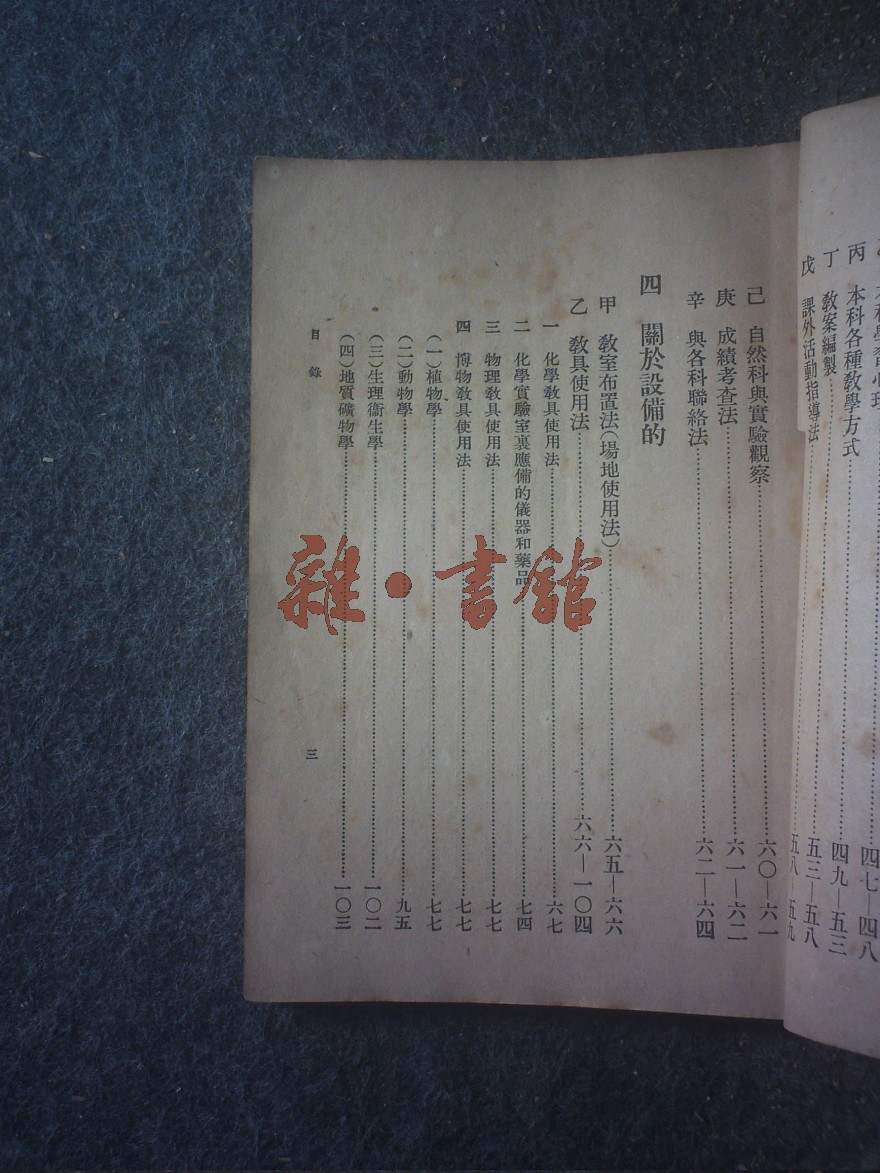 本科學習心理 四七—四八
丙 本科各種教學方式 四九—五三
丁 教案編製 五三—五八
戊 課外活動指導法 五八—五九
己 自然科與實驗觀察 六〇—六一
庚 成績考查法 六一—六二
辛 與各科聯絡法 六二—六四
四 關於設備的
甲 教室布置法(場地使用法) 六五—六六
乙 教具使用法 六六—一〇四
一 化學教具使用法 六七
二 化學實驗室裏應備的儀器和藥品 七四
三 物理教具使用法 七七
四 博物教具使用法 七七
(一)植物學 七七
(二)動物學 九五
(三)生理衞生學 一〇二
(四)地質礦物學 一〇三
目錄 三
雜·書館